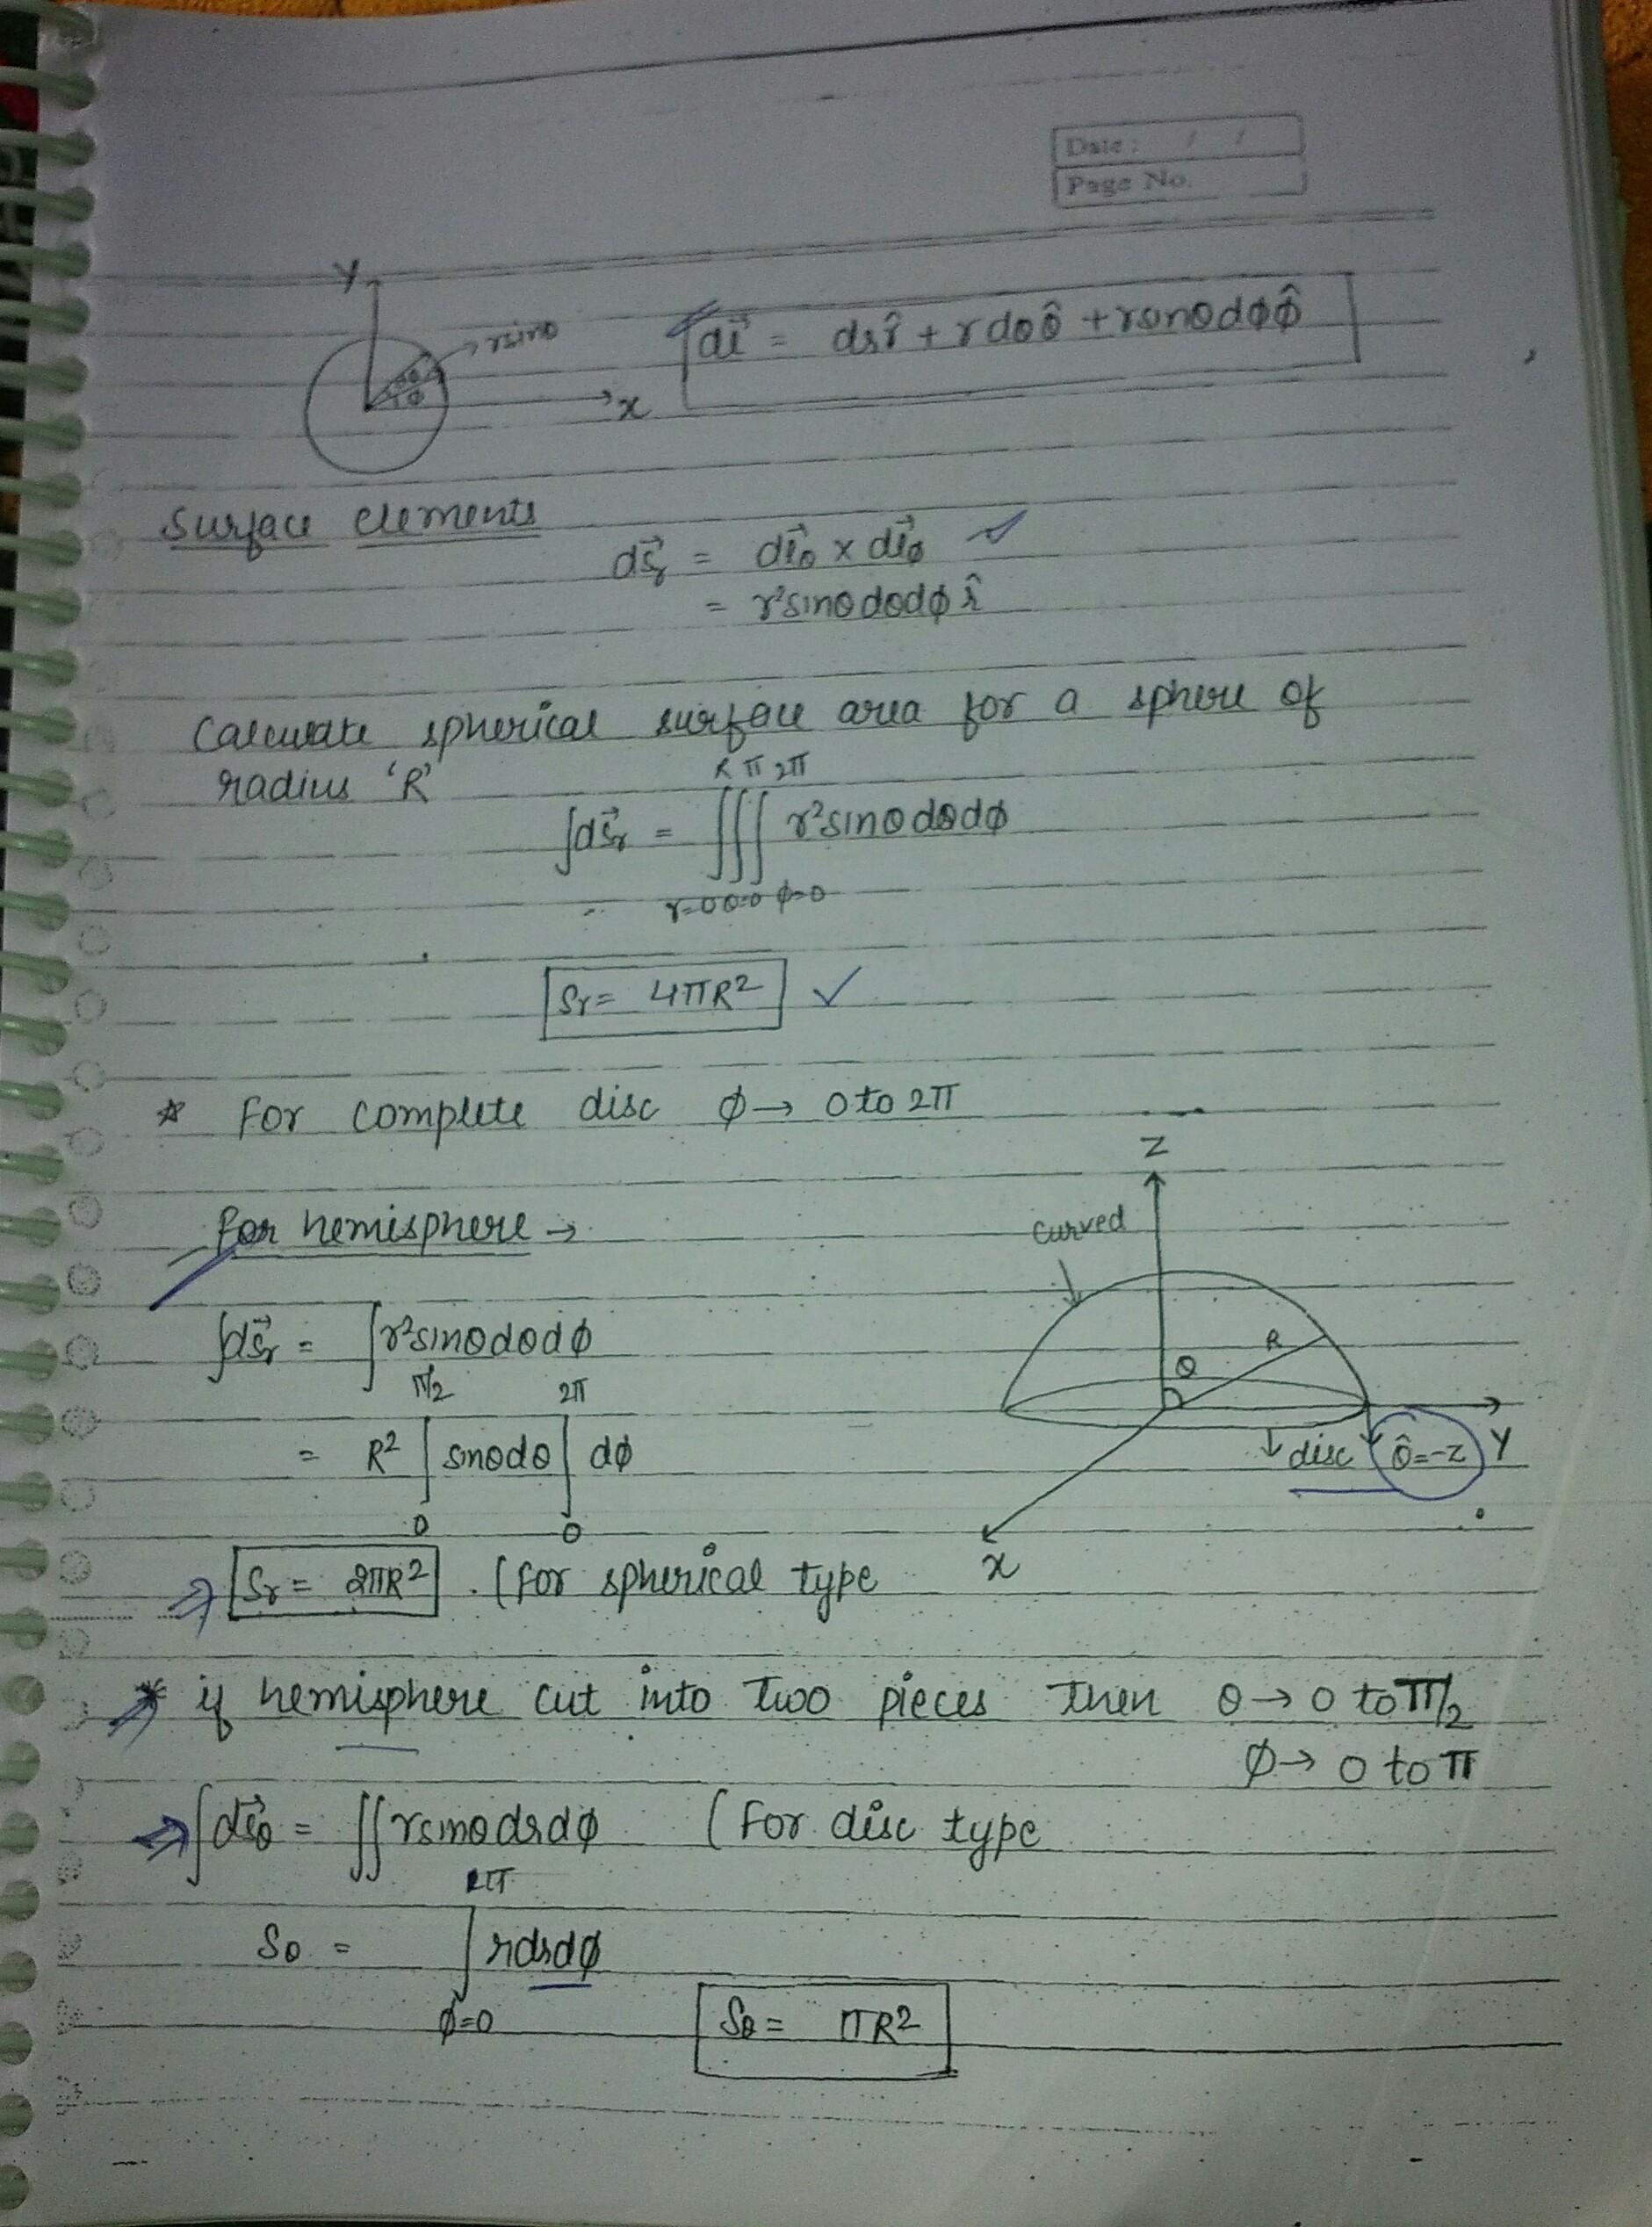 Date: / /
Page No.
Y
rsinθ
dθ
φ
x
dl⃗ = dr r̂ + r dθ θ̂ + r sinθ dφ φ̂
Surface elements
ds⃗r = dl⃗θ × dl⃗φ
= r²sinθdθdφ r̂
Calculate spherical surface area for a sphere of
radius 'R'
R π 2π
∫ds⃗r = ∫∫∫ r²sinθdθdφ
r=0 θ=0 φ=0
Sr = 4πR² ✓
* For complete disc φ → 0 to 2π
Z
Curved
For hemisphere →
∫ds⃗r = ∫r²sinθdθdφ
R
θ
π/2 2π
= R² ∫ sinθdθ ∫ dφ
0 0
↓ disc θ̂ = -z Y
x
⇒ Sr = 2πR² . (for spherical type
* if hemisphere cut into two pieces then θ → 0 to π/2
φ → 0 to π
⇒ ∫ds⃗θ = ∫∫ r sinθ dr dφ (For disc type
2π
Sθ = ∫ r dr dφ
φ=0
Sθ = πR²